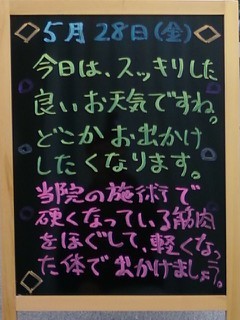 5月28日(金)
今日は、スッキリした
良いお天気ですね。
どこかお出かけ
したくなります。
当院の施術で
硬くなっている筋肉
をほぐして、軽くなっ
た体でお出かけましょう。